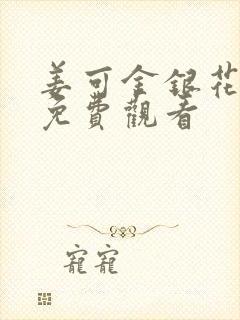 姜可金銀花
免費觀看
寵寵